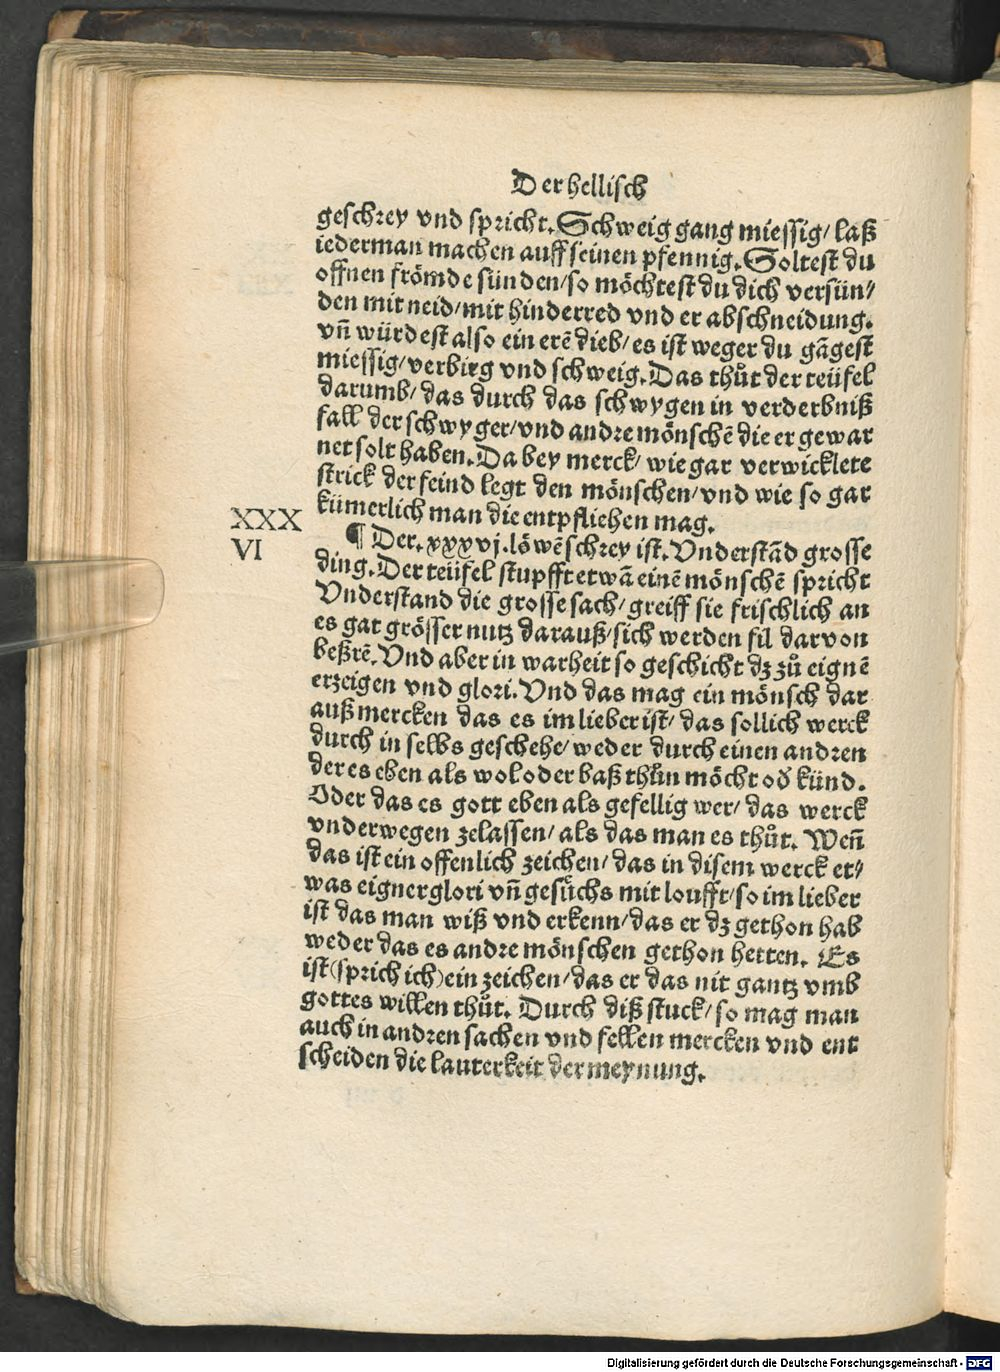 Der hellisch
geschrey vnd spricht. Schweig gang miessig/ laß
iederman machen auff seinen pfennig. Soltest du
offnen frömde sünden/so möchtest du dich versün/
den mit neid/mit hinderred vnd er abschneidung.
vn̄ würdest also ein erē dieb/ es ist weger du gāgest
miessig/verbirg vnd schweig. Das thůt der teüfel
darumb/ das durch das schwygen in verderbniß
fall der schwyger/vnd andre mönschē die er gewar
net solt haben. Da bey merck/ wie gar verwicklete
strick der feind legt den mönschen/vnd wie so gar
kümerlich man die entpfliehen mag.
XXX
VI
¶ Der. xxxvj. löwēschrey ist. Vnderstād grosse
ding. Der teüfel stupfft etwā einē mönschē spricht
Vnderstand die grosse sach/ greiff sie frischlich an
es gat grösser nutz darauß/sich werden fil darvon
beßrē. Vnd aber in warheit so geschicht dz zů eignē
erzeigen vnd glori. Vnd das mag ein mönsch dar
auß mercken das es im lieber ist/ das sollich werck
durch in selbs geschehe/ weder durch einen andren
der es eben als wol oder baß thůn möcht od̛ künd.
Oder das es gott eben als gefellig wer/ das werck
vnderwegen zelassen/ als das man es thůt. Wen̄
das ist ein offenlich zeichen/ das in disem werck et/
was eigner glori vn̄ gesůchs mit loufft/so im lieber
ist das man wiß vnd erkenn/das er dz gethon hab
weder das es andre mönschen gethon hetten. Es
ist (sprich ich) ein zeichen/das er das nit gantz vmb
gottes willen thůt. Durch diß stuck/ so mag man
auch in andren sachen vnd fellen mercken vnd ent
scheiden die lauterkeit der meynung.
Digitalisierung gefördert durch die Deutsche Forschungsgemeinschaft - DFG